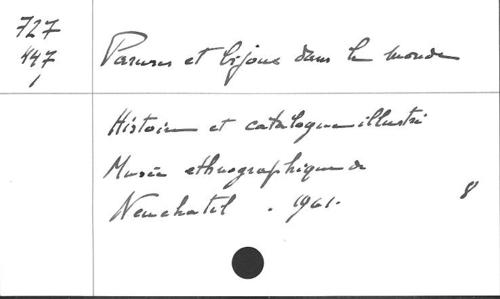 727
447
1
Parures et bijoux dans le monde
Histoire et catalogue illustré
Musée ethnographique de
Neuchatel . 1961.
8